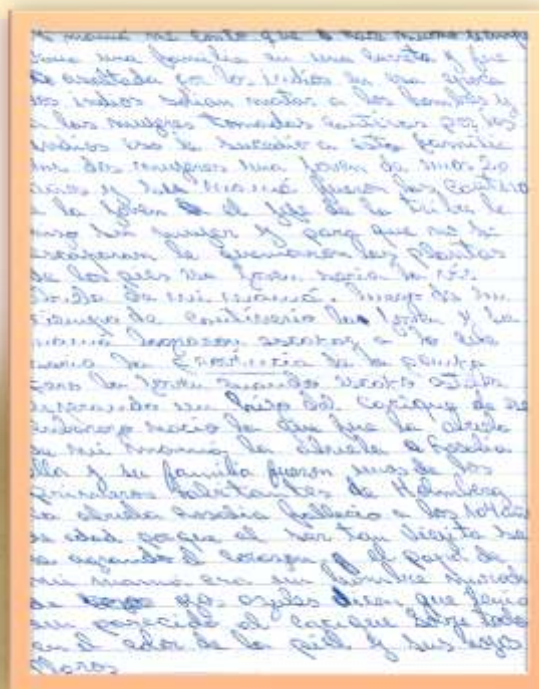 mamá me conto que hace mucho tiempo
una familia en una careta y fue
asaltada por los indios en esa epoca
los indios solian matar a los hombres y
a las mugeres tomadas cautivas por los
indios eso le sucedio a esta familia
dos mugeres una joven de unos 20
años y su mamá fueron las cautivas
a la joven el jefe de la tribu la
hizo su muger y para que no se
escaparan le quemaron las plantas
de los pies esa joven seria la
de mi mamá. luego de un
tiempo de cautiverio la joven y la
mamá lograron escapar a
la de la
pero la joven cuando escapo estaba
esperando un hijo del cacique de ese
embarazo nacio la que fue la abuela
de mi mamá la abuela Rosalia
ella y su familia fueron unos de los
primeros habitantes de Holmberg
la abuela rosalia fallecio a los 104 años
de edad porque al ser tan viejita se
el corazon el papá de
mi mamá era un hombre
de ojos dicen que tenia
un parecido al cacique sobre todo
en el color de la piel y sus
Moros